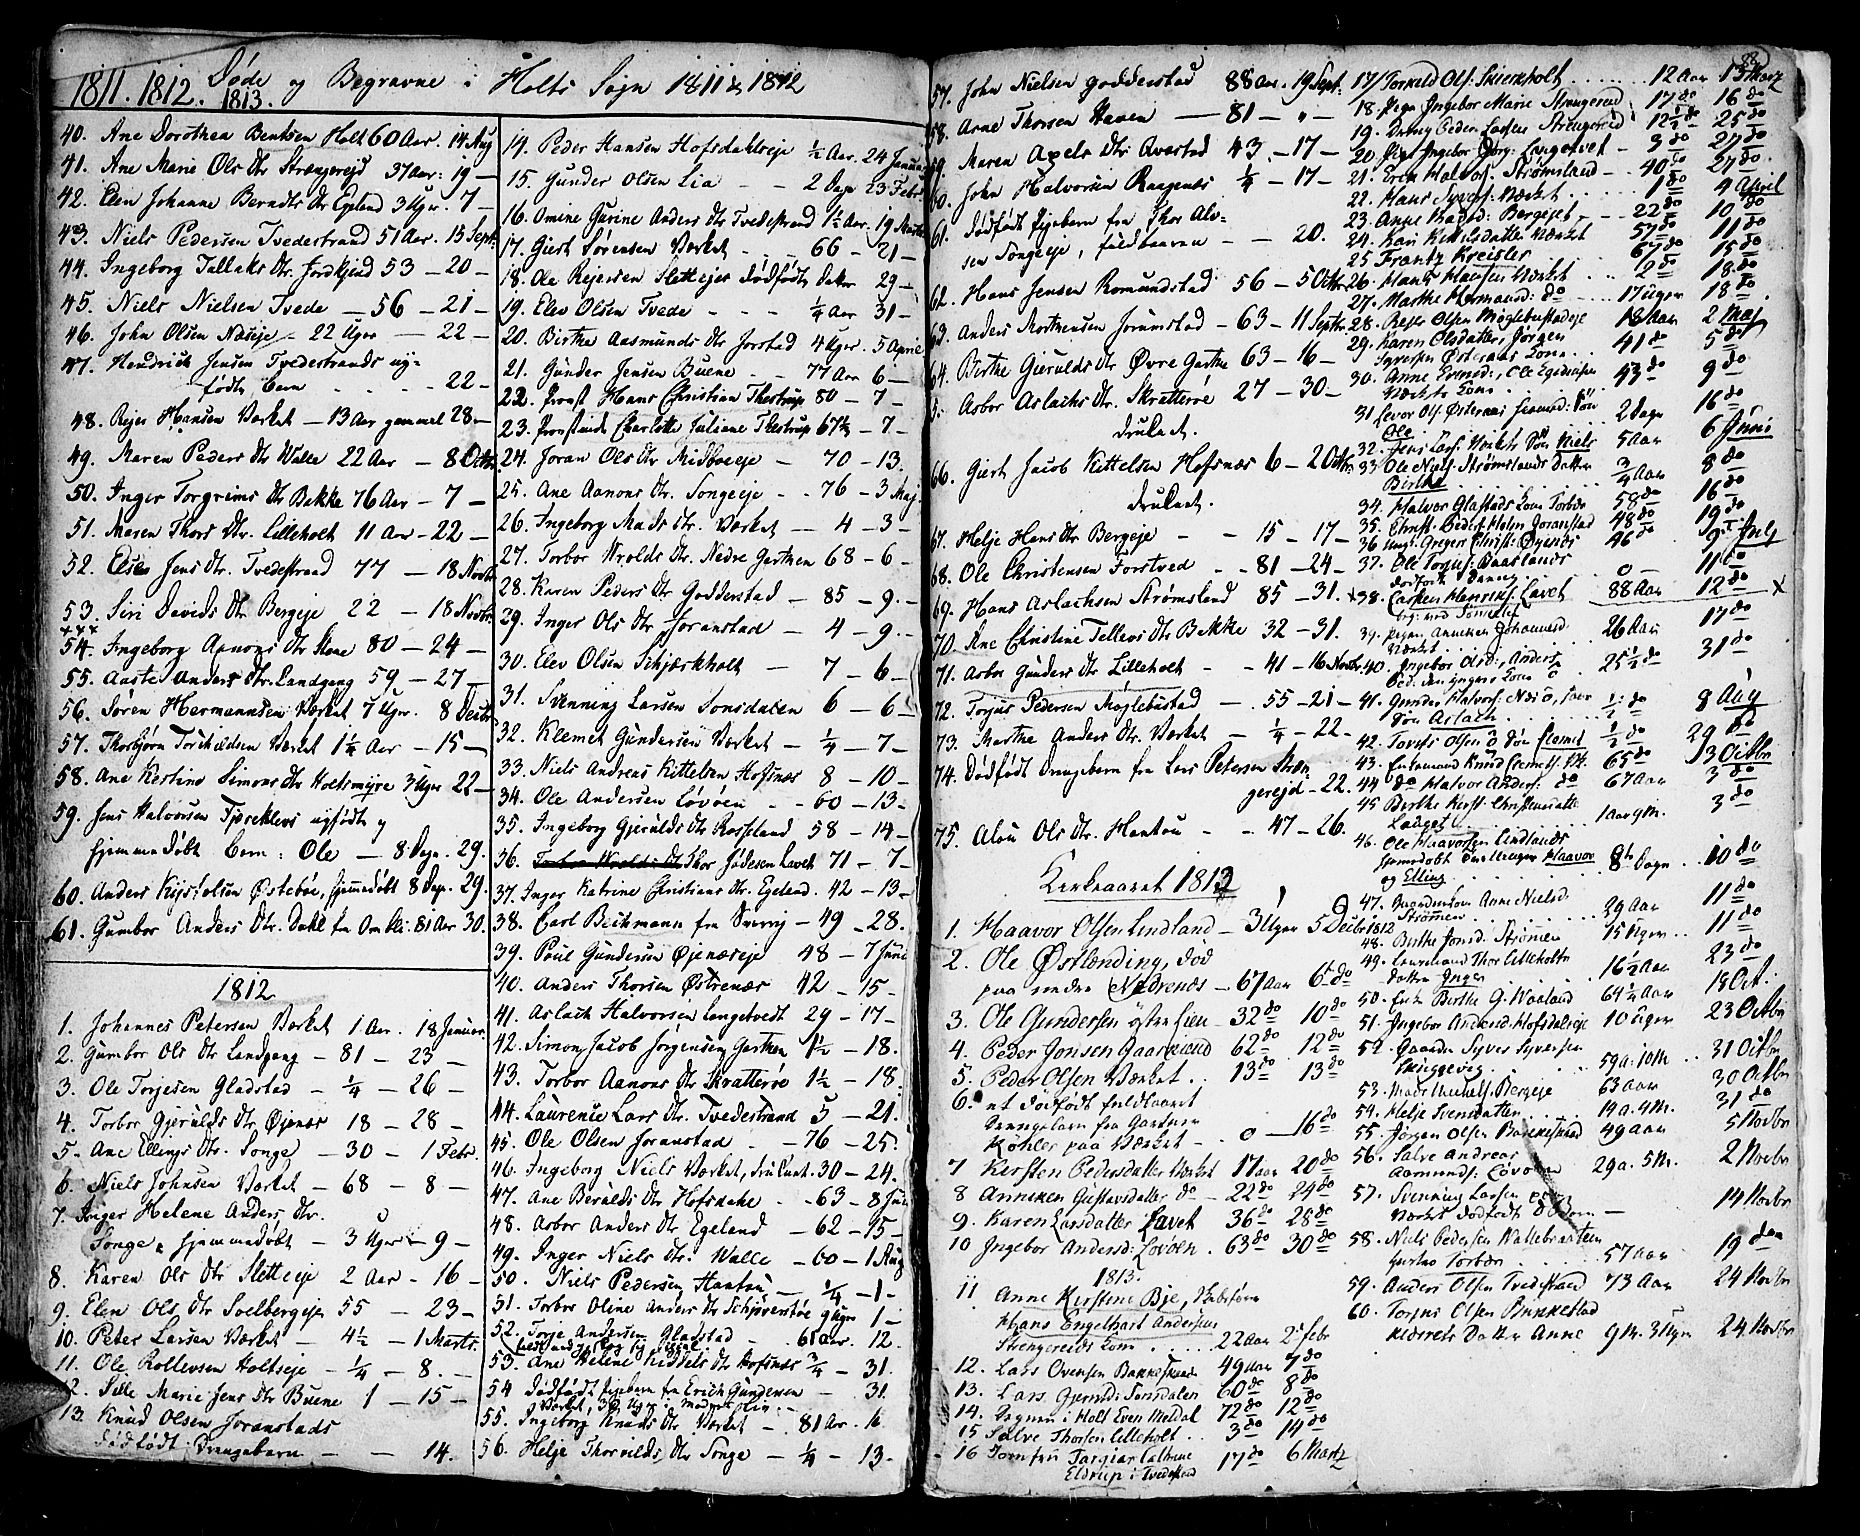 1811. 1812. 1813.
Døde og Begravne i Holts Sogn 1811 & 1812
40. Ane Dorothea Bentsen Holt 60 Aar. 14 Aug
41. Ane Marie Ols Dtr Strængereid 37 Aar: 19 —
42. Elen Johanne Berndts Dtr Egeland 3 Uger. 7 —
43. Niels Pedersen Tvedestrand 51 Aar. 13 Sept.
44. Ingeborg Tallaks Dtr. 53 — 20 —
45. Niels Nielsen Tvede — 56 — 21 —
46. John Olsen Næseje — 22 Uger — 22 —
47. Hendrich Jensen Tvedestrands ny-
fødte barn — 22 —
48. Rejer Hansen Værket — 13 Aar gammel 28 —
49. Maren Peders Dtr Walle 22 Aar — 8 Octbr.
50. Inger Torgrims Dtr Bekke 76 Aar — 7 —
51. Maren Thors Dtr. Lilleholt 11 Aar — 22 —
52. Elsen Jens Dtr. Tvedestrand 77 — 18 Novbr
53. Siri Davids Dtr Bergeje 22 — 18 Novbr
54. Ingeborg Aanons Dtr 80 — 24 —
55. Aaste Anders Dtr. Landgang 59 — 27 —
56. Søren Hermannsen Værket 7 Uger. 8 Decbr
57. Thorbjørn Værket 1¼ Aar — 15 —
58. Ane Kestine Simons Dtr Holtsmyre 3 Uger 22 —
59. Jens Halvorsen nyfødte og
hjemmedøbt barn: Ole — 8 Dage. 29.
60. Anders Østebøe, hjemmedøbt 8 Dage. 29.
61. Gumbor Anders Dtr. Dahl fra Omlie: 81 Aar 30.
1812
1. Johannes Petersen Værket 1 Aar. 18 Januar.
2. Gumbor Ols Dtr Landgang — 81 — 23 —
3. Ole Torjesen Gladstad — ¼ — 26 —
4. Torbor Gjerulds Dtr. Øjenæs 18 — 28 —
5. Ane Ellings Dtr. Songe — 30 — 1 Febr.
6. Niels Johnsen Værket — 68 — 8 —
7. Inger Helene Anders Dtr.
Songe, hjemmedøbt — 3 Uger — 9 —
8. Karen Ols Dtr Sletteeje 2 Aar — 16 —
9. Elen Ols Dtr Soelbergeje 55 — 23 —
10. Peter Larsen Værket — 4½ — 1 Marts.
11. Ole Rollevsen Holtseje — ¼ — 8. —
12. Sille Marie Jens Dtr Buene 1 — 15 —
13. Knud Olsen Joranstads
dødfødt Drengebarn — — 14.
14. Peder Hansen Hofsdahlseje ½ Aar. 24 Januar
15. Gunder Olsen Lia — 2 Dage 23 Febr
16. Omine Gurine Anders Dtr Tvedestrand 1½ Aar. 19 Marts
17. Giert Sørensen Værket — 66 — 21 —
18. Ole Rejersen Sletteejes dødfødte Datter 29 —
19. Elev Olsen Tvede — ¼ Aar 31 —
20. Birthe Aasmunds Dtr Jorstad 4 Uger. 5 April
21. Gunder Jensen Buene — 77 Aar 6 —
22. Provst Hans Christian Thestrup 80 — 7 —
23. Provstinde Charlotte Juliane Thestrup 67½ — 7 —
24. Joran Ols Dtr Midboeje — 70 — 13.
25. Ane Aanons Dtr. Songeeje — 76 — 3 Maj
26. Ingeborg Mads Dtr. Værket — 4 — 3 —
27. Torbor Wrolds Dtr. Nedre Garthen 68 — 6 —
28. Karen Peders Dtr Godderstad — 85 — 9 —
29. Inger Ols Dtr Joranstad — 4 — 9 —
30. Elev Olsen Schjærkholt — 7 — 6 —
31. Svenning Larsen Sonsdalen 6 — 6 —
32. Klemet Gundersen Værket — ¼ — 7 —
33. Niels Andreas Kittelsen Hofsnæs 8 — 10 —
34. Ole Andersen Løvøen — 60 — 13 —
35. Ingeborg Gjerulds Dtr Rosseland 58 — 14 —
36. Torbor Wrolds Dtr Thor Jødesen Lavet 71 — 7 —
37. Inger Katrine Christians Dtr. Egeland. 42 — 13 —
38. Carl Beckmann fra Sverrig — 49 — 28.
39. Poul Gundersen Øjenæseje 48 — 7 Juni
40. Anders Thorsen Østrenæs 42 — 15 —
41. Aslach Halvorsen Langetvedt 29 — 17 —
42. Simon Jacob Jørgensen Garthen 1½ — 18.
43. Torbor Aanons Dtr Skratterøe 1½ — 18.
44. Laurense Lars Dtr. Tvedestrand 5 — 21.
45. Ole Olsen Joranstad — 76 — 25.
46. Ingeborg Niels Værket, druknet. 30 — 24.
47. Ane Berulds Dtr Hofsdahl — 63 — 8 Juni
48. Arbor Anders Dtr Egeland — 62 — 15 —
49. Inger Niels Dtr. Walle — 60 — 1 Aug
50. Niels Pedersen Hantou — ¼ — 1 —
51. Torbor Oline Anders Dtr 9 Uger 1 —
52. Torje Andersen Gladstad — 65 Aar. 12.
53. Ane Helene Kiddels Dtr Hofsnæs ¾ — 31.
54 Dødfødt Pigebarn fra Erich Gundersen — 31.
55. Ingeborg Knuds Dtr. Værket — 81 Aar. 16
56. Helje Thorvilds Dtr Songe — ¼ — 13 —
57. John Nielsen Godderstad 88 Aar. 19 Sept.
58. Arne Thorsen Haven — 81 — " —
59. Maren Axels Dtr Qvastad 43. — 17 —
60. John Halvorsen Raagenæs ¼ — 17 —
61. Dødfødt Pigebarn fra Thor Alv-
sen Songeeje, fuldbaaren — 20.
62. Hans Jensen Romundstad 56 — 5 Octbr
63. Anders Morthensen Jorumstad — 63 — 11 Septr.
64. Birthe Gjerulds Dtr Øvre Garthe 63 — 16 —
65. Arbor Aslachs Dtr. Skratterøe 27 — 30 —
druknet.
66. Giert Jacob Kittelsen Hofsnæs 6 — 2 Octbr
druknet.
67. Helje Hans Dtr Bergeje — 15 — 17 —
68. Ole Christensen Forstved — 81 — 24 —
69. Hans Aslachsen Strømsland 85 — 31.
70. Ane Christine Tellevs Dtr Bekke 32 — 31.
71. Arbor Gunders Dtr Lilleholt — 41 — 16 Novbr.
72. Torjus Pedersen Møglebustad — 55 — 21 —
73. Marthe Anders Dtr. Værket — ¼ — 22 —
74. Dødfødt Drengebarn fra Lars Petersen Stræn-
gereid — 22.
75. Alou Ols Dtr. Hantou — 47 — 26.
Kirkeaaret 1813
1. Haavor Olsen Lindland — 3 Uger 5 Decbr 1812
2. Ole Østlænding, død
paa søndre Nedrenæs — 67 Aar 6 do
3. Ole Gundersen østre Lien — 32 do 10 do
4. Peder Jonsen Gaarlund 62 do 12 do
5. Peder Olsen Værket .. 13 do 13 do
6. et dødfødt fuldbaaret
Drengebarn fra Gartner
Köhler paa Værket — 0 — 16 do
7 Kersten Pedersdatter Værket 17 aar 20 do
8 Anneken Gustavsdatter do — 22 do 24 do
9. Karen Larsdatter Lavet 36 do 28 do
10 Ingebor Andersd: Løvøen . 63 do 30 do
1813.
11 Anne Kirstine Bje,
Hans Engelhart Andersens
Strengereids Kone ..... 22 aar 2 febr
12. Lars Ovensen Bakkeskaae 49 aar 7 do
13. Lars Gjermds: Sonsdalen 60 do 8 do
14. Degnen i Holt Even Meldal 72 do 12 do
15 Salve Thorsen Lilleholt .. 3 do 14 do
16 Jomfru Jargiar Cathrine
Eldrup i Tvedestrand 17 do 6 Martz
17/ Torkeld Ols. Skierkholt ....... 12 Aar 13 Martz
18. Pigen Ingebor Marie Strengereid 17 do 16 do
19. Dreng Peder Larsen Strengereid 12½ do 25 do
20. Pige Ingebor Jørg: Langetvet — 3 do 27 do
21. Erik Halvors. Strømsland — 40 do 27 do.
22. Hans Syvers: Værket 1 do 4 April
23. Anne Bergeiet — 22 do 10 do
24. Kari Kittilsdatter Værket 57 do 11 do
25 Frantz Kreisler 67 do 15 do
26. Hans Hansen Værket . . 2 do 18 do
27. Marthe Hermansd: do ..... 17 Uger 18 do
28. Rejer Olsen Møglebustadeje 18 Aar 2 Maj
29. Karen Olsdatter, Jørgen
Syversen Østeraas Kone .. 41 do 5 do
30. Anne Evensd:, Ole
Værkets Kone .. 43 do 9 do
31 Levor Ols. Østernes Søn
Ole 2 Dage 16 do
32. Jens Lars. Søn Niels 5 Aar 6 Juni
33 Ole Niels. Strømslands Datter
Birthe ¾ Aar 8 do
34. Halvor Gladstads Kone Torbor 58 do 16 do
35. Christ. Peder Holm Joranstad 48 do 19 do
36 Ungk. Gregers Christ: Øynæs 46 do 9 July
37. Ole Torjus:
dødfødt Dreng 0 — 11 do
x38. Carsten Henriks. Lavet 88 Aar 12 do x
39. Pigen Anneken Johannesd
Værket 26 Aar 17 do
40. Ingebor Olsd:, Anders
Ped. den yngres Kone 25½ do 31 do
41. Gunder Halvors:
Søn Aslach ½ do 8 Aug
42. Torsts Olsen Søn Clemet ½ do 29 do
43. Enkemand Knud Clemets. 65 do 3 Octbr
44 do Halvor Anders: do 67 Aar 3 do
45 Birthe Kirst. Christensdatt
Lavet 1 aar 9 M. 3 do
46. Ole Haavorsen Lindlands
hjemdøbt Tvillinger Haavor
og Elling 8 Dage .. 10 do
47. Anne Nielsd
Strømen 29 Aar 11 do
48. Birthe Jonsd: Strømen 15 Uger .. 11 do
49. Thor Lilleholts
datter Inger 16½ Aar 23 do
50. Enke Birthe G. Waaland 64¼ Aar 18 Oct.
51. Ingebor Andersd: Hofsdaleeje 10 Uger 23 Octbr
52. Gaardm Syver Syversen
Skiggeveg 59 a. 10 M .. 31 Octbr
53. Bergeje 63 aar 30 Octbr
54. Helje Svensdatter 19 a. 4 M. 31 do
55. Jørgen Olsen Bakkeskaae 49 Aar 5 Novbr
56. Salve Andreas
Aamunds: Løvøen 29 a. 5 M. 2 Novbr
57. Svenning Larsen
Værket dødfødt — 14 Novbr
58. Niels Pedersen
hustru Torbor 57 aar 19 den
59. Anders Olsen Tvedestrand 73 Aar 24 Novbr
60. Torjus Olsen Bakkestad
Datter Anne 9 M. 3 Uger 24. Novbr